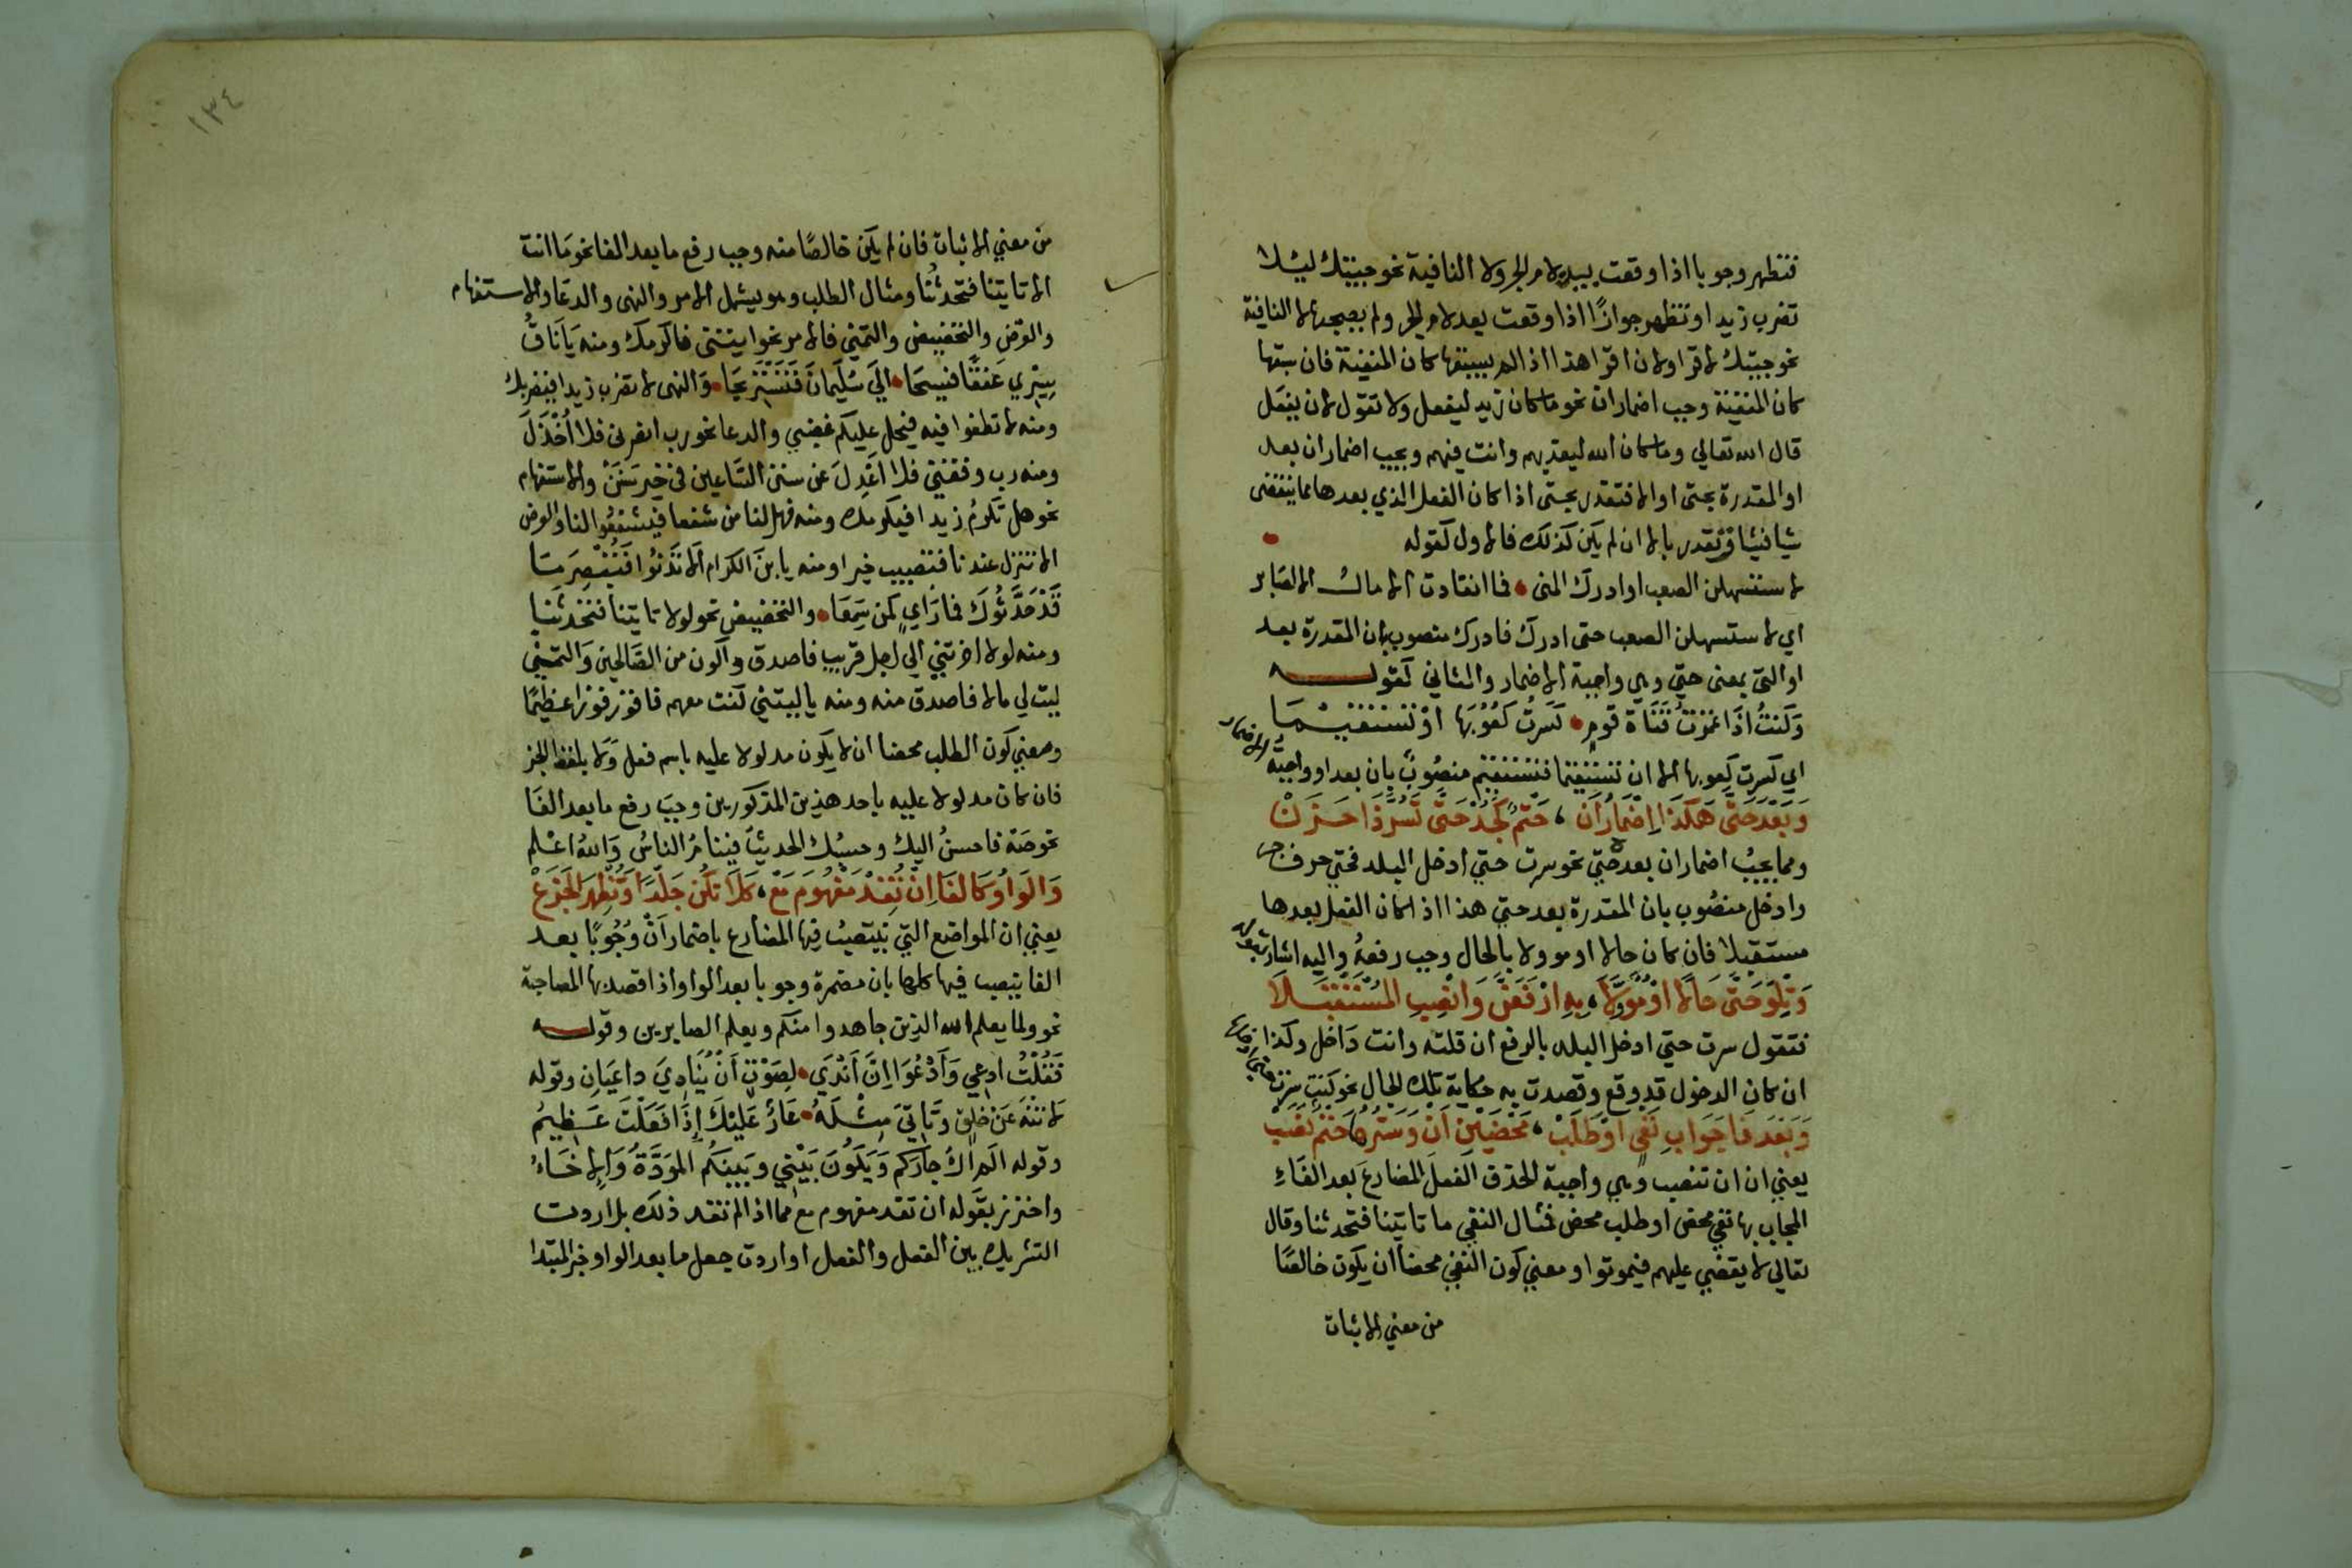 فتظهر وجوبا اذا وقعت بين لام الجر ولا النافية نحو جيتك ليلا
تضرب زيدا وتظهر جوازًا اذا وقعت بعد لام الجر ولم يصحبها لا النافية
نحو جيتك لاقرا ولان اقرا هذا اذا لم يسبقها كان المنفية فان سبقها
كان المنفية وجب اضمار ان نحو ما كان زيد ليفعل ولا تقول لان يفعل
قال الله تعالي وما كان الله ليعذبهم وانت فيهم ويجب اضمار ان بعد
او المقدرة بحتى او الا فتقدر بحتى اذا كان الفعل الذي بعدها مما ينقضى
شيا فشيا وتقدر بالا ان لم يكن كذلك فالاول كقوله
لاستسهلن الصعب او ادرك المنى • فما انقادت الامال الا لصابر
اي لاستسهلن الصعب حتى ادرك فادرك منصوب بان المقدرة بعد
او التي بمعنى حتي وهي واجبة الاضمار والثاني كقوله
وَكنتُ اذَا غمزتُ قَنَاةَ قومٍ • كَسَرتُ كُعُوبَها اوْ تَسْتَقيمَا
اي كسرت كعوبها الا ان تستقيما فتستقيم منصُوبٌ بان بعد او واجبة الاضمار
وَبَعْدَ حَتَّى هَكَذَا اِضْمَارُ اَن ، حَتْمٌ كَجُدْ حَتَّى تَسُرَّ ذَا حَزَنْ
ومما يجبُ اضمار ان بعده حتي نحو سرت حتي ادخل البلد فحتي حرف جر
وادخل منصُوب بان المقدرة بعد حتي هذا اذا كان الفعل بعدها
مستقبلا فان كان حالا او موولا بالحال وجب رفعهُ واليه اشار بقوله
وَتِلْوَ حَتَّى حَالًا اوْ مُؤَوَّلَا ، بِهِ ارْفَعَنَّ وَانْصِبِ المُسْتَقْبَلَا
فتقول سرت حتي ادخل البلد بالرفع ان قلته وانت دَاخل وكذا
ان كان الدخول قد وقع وقصدت به حكاية تلك الحال نحو كنت سرت
وَبَعْدَ فَا جَوَابِ نَفْىٍ اوْ طَلَبْ ، مَحْضَيْنِ اَنْ وَسَتْرُهَا حَتْمٌ نَصَبْ
يعني ان ان تنصب وهي واجبة الحذف الفعلَ المضارعَ بعد الفَاءِ
المجاب بها نفي محض او طلب محض فمثال النفي ما تاتينا فتحدثنا وقال
تعالي لا يقضي عليهم فيموتوا ومعني كون النفي محضا ان يكون خالصًا
من معني الاثبات
١٣٤
من معني الاثبات فان لم يكن خالصًا منه وجب رفع ما بعد الفا نحو مَا انت
الا تاتينا فتحدثُنا ومثال الطلب وهو يشمل الامر والنهى والدعَا والاستفهام
والعرض والتحضيض والتمني فالامر نحو ايتني فاكرمك ومنه يَا نَاقُ
سِيرِي عَنَقًا فسِيحَا • الَي سُلَيمَانَ فَنَسْتَرِيحَا • وَالنهى لا تضرب زيدا فيضربك
ومنه لا تطغوا فيه فيحل عليكم غضبي والدعا نحو رب انصرني فلا اُخْذَلَ
ومنه رب وفقني فلا اَعْدِلَ عن سنن السَّاعين في خير سَنَنْ والاستفهام
نحو هل تكرمُ زيدا فيكرمك ومنه فهل لنا من شفعا فيشفعُوا لنا والعرض
الا تنزل عندنا فتصيب خيرا ومنه يا ابنَ الكرام ألا تَدْنُوا فَتُبْصِرَ مَا
قَدْ حَدَّثُوكَ فما رَاءٍ كمن سَمِعَا • والتحضيض نحو لولا تاتينا فتحدثنا
ومنه لولا اخرتني الي اجل قريب فاصدق واكون من الصَّالحين وَالتمني
ليت لي مالا فاصدق منه ومنه يا ليتني كنت معهم فافوز فوزا عظيمًا
ومعني كون الطلب محضا ان لا يكون مدلولا عليه باسم فعل وَلا بلفظ الخبر
فان كان مدلولا عليه باحد هذين المذكورين وجبَ رفع ما بعد الفَا
نحو صَهْ فاحسنُ اليك وحسبُك الحديثُ فينامُ الناسُ وَاللهُ اعْلم
وَالوَاوُ كَالفَا اِنْ تُفِدْ مَفْهُومَ مَعْ ، كَلَا تَكُن جَلْدًا وَتُظْهِرَ الجَزَعْ
يعني ان المواضع التي ينتصبُ فيها المضارع باضمار اَنْ وُجُوبًا بعد
الفا ينصب فيها كلها بان مضمرة وجوبا بعد الواو اذا قصد بها المصاحبة
نحو ولما يعلم الله الذين جاهدوا منكم ويعلم الصابرين وقوله
فَقُلْتُ ادعِي وَأَدْعُوَا اِنَّ اَنْدَي • لِصَوْتٍ أَنْ يُنَادِيَ داعِيَانِ وقوله
لا تَنْهَ عَنْ خُلقٍ وَتَاتِيَ مِثْلَهُ • عَارٌ عَلَيْكَ إِذَا فَعَلْتَ عَظِيمُ
وقوله الَم اكُ جارَكم وَيَكُونَ بَيْنِي وبَينَكُم الموَدَّةُ وَالاِخَاءُ
واحترز بقَوله ان تفد مفهوم مع مما اذا لم تفد ذلك بل اردت
التشريك بين الفعل والفعل او اردت جعل ما بعد الواو خبر المبتدا